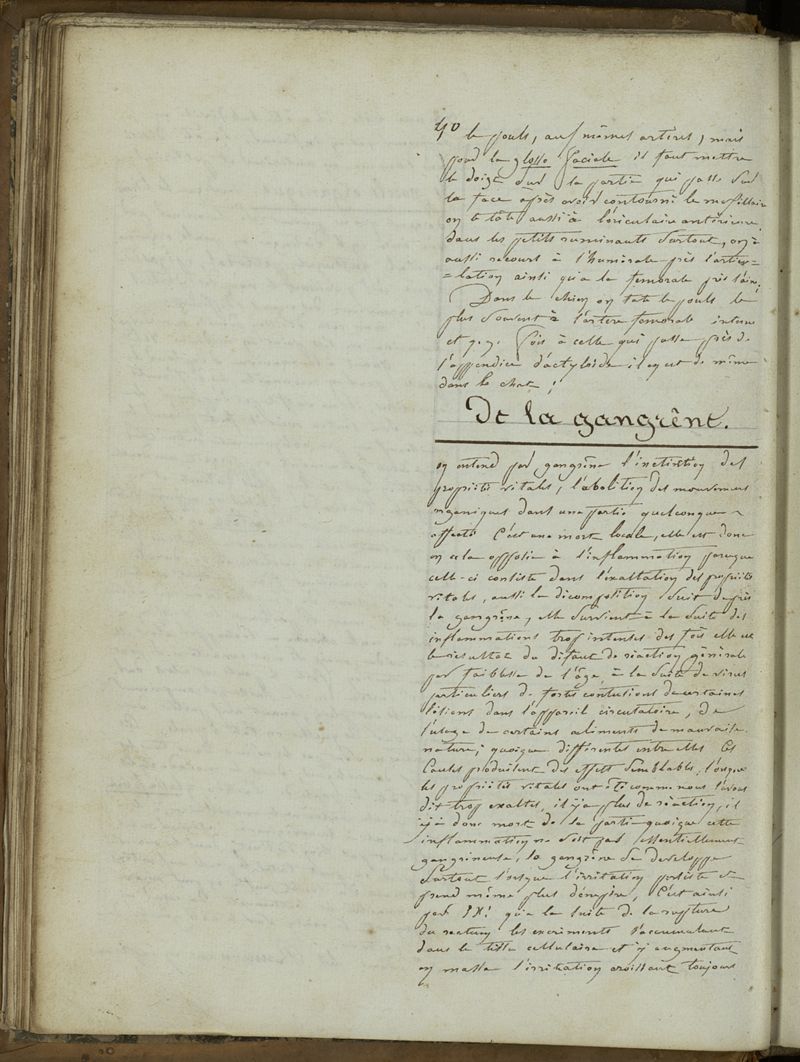 40
le pouls, aux mêmes artères, mais
pour la glosso faciale il faut mettre
le doigt sur la partie qui passe sur
la face après avoir contourné le maxillaire
on le tâte aussi à l'oriculaire antérieure,
dans les petits ruminants surtout, on a
aussi recours à l'humérale près l'articu=
=lation ainsi qu'a la femorale près l'aine,
Dans le chien on tate le pouls le
plus souvent à l'artère femorale interne
et q.q. fois à celle qui passe près de
l'appendice dactyloïde il en est de même
dans le chat;
De la gangrène.
on entend par gangrène l'inctinction des
propriétés vitales, l'abolition des mouvemens
organiques dans une partie quelconque
affecté C'est une mort locale, elle est donc
en cela opposée à l'inflammation parceque
celle-ci consiste dans l'exaltation des propriétés
vitales, aussi la décomposition suit de près
la gangrène, elle survient à la suite des
inflammations trop intenses des fois elle est
le resultat du défaut de réaction générale
par faiblesse de l'âge, à la suite de virus
particuliers de fortes contusions de certaines
lésions dans l'appareil circulatoire, de
l'usage de certains aliments de mauvaise
nature, quoique différentes entre elles ces
causes produisent des effets semblables, lorsque
les propriétés vitales ont été comme nous l'avons
dit trop exaltes, il n'ya plus de réaction, il
y a donc mort de la partie quoique cette
inflammation ne soit pas essentiellement
gangrineuse, la gangrène se developpe
surtout lorsque l'irritation persiste et
prend même plus d'empire, C'est ainsi
par EX! qu'a la suite de la rupture
du rectum les excriments s'accumulant
dans le tissu cellulaire et y augmentant
en masse l'irritation croissant toujours